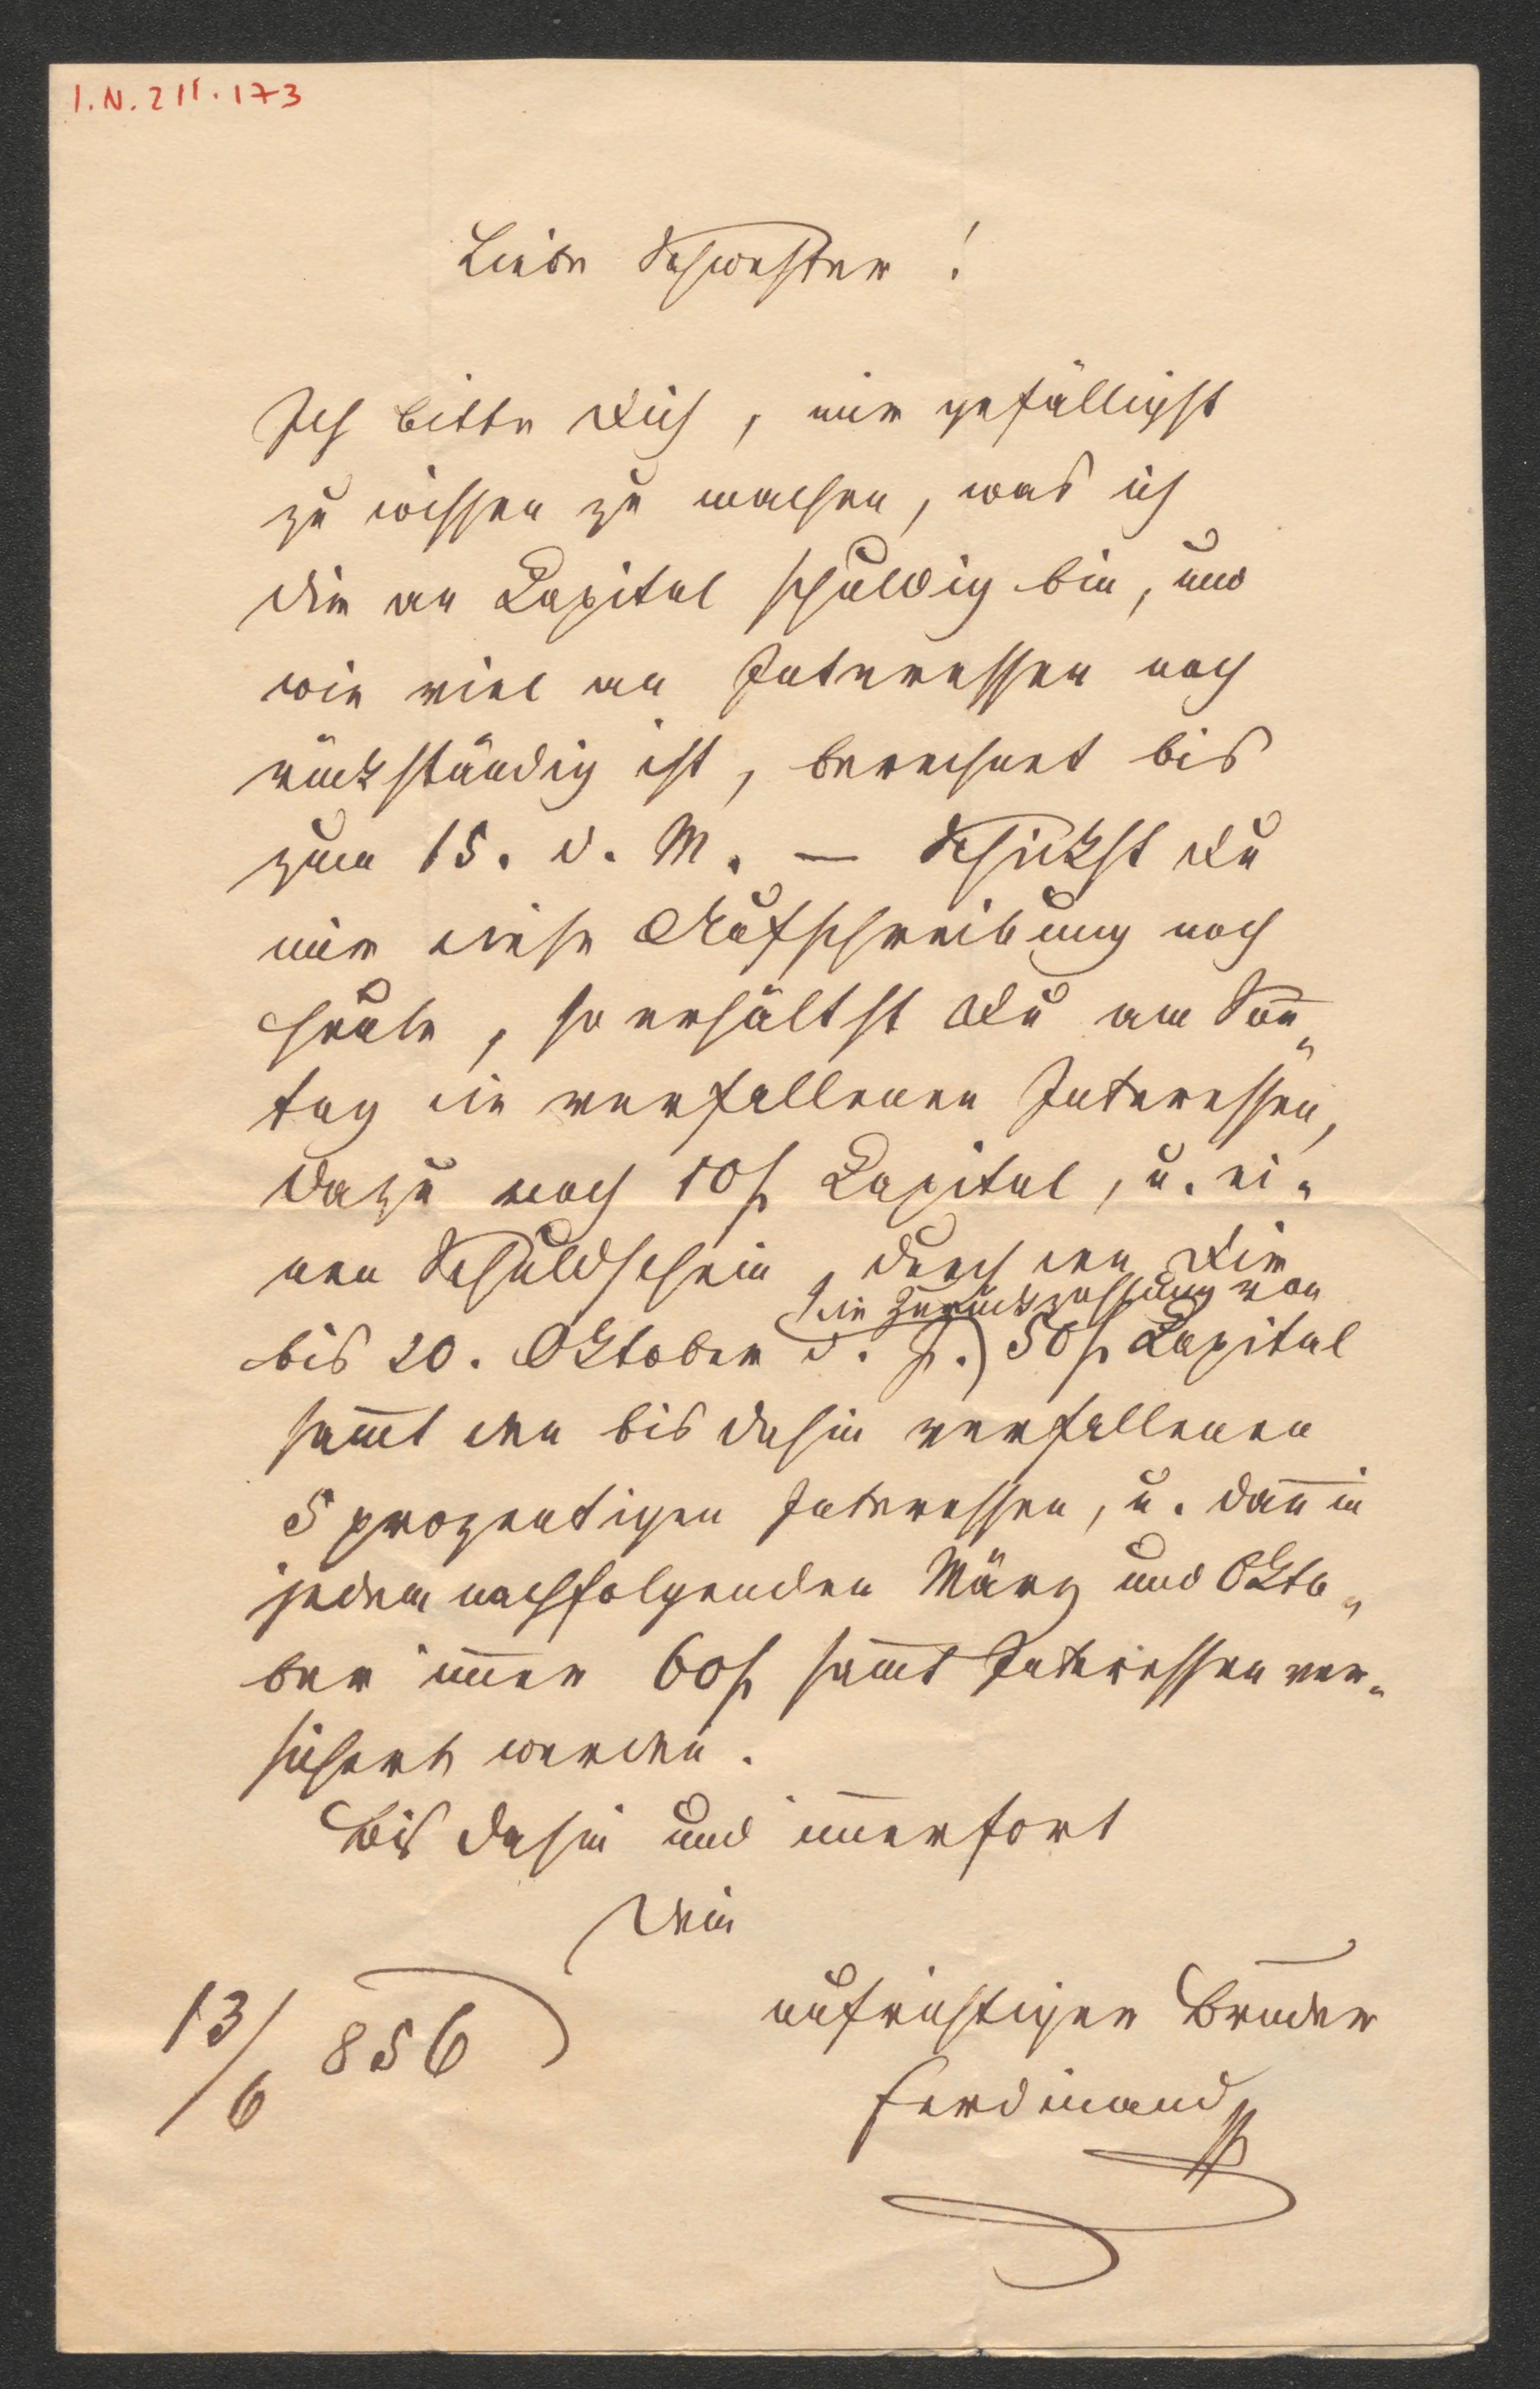 I.N. 211.173
Liebe Schwester!
Ich bitte Dich, mir gefälligst
zu wissen zu machen, was ich
Dir an Capital schuldig bin, und
wie viel an Interessen noch
rückständig ist, berechnet bis
zum 15. d. M. — Schickst Du
mir diese Aufschreibung noch
heute, so erhältst Du am Son̄„
tag die verfallenen Interessen,
dazu noch 10f Capital, u. ei„
nen Schuldschein, durch den Dir
die Zurückzahlung von
bis 20. Oktober d. J.) 50f Capital
sam̄t den bis dahin verfallenen
5 prozentigen Interessen, u. dan̄ in
jedem nachfolgenden März und Okto„
ber im̄er 60f sam̄t Interessen ver„
sichert werden.
Bis dahin und im̄erfort
Dein
aufrichtiger Bruder
13/6 856
Ferdinand